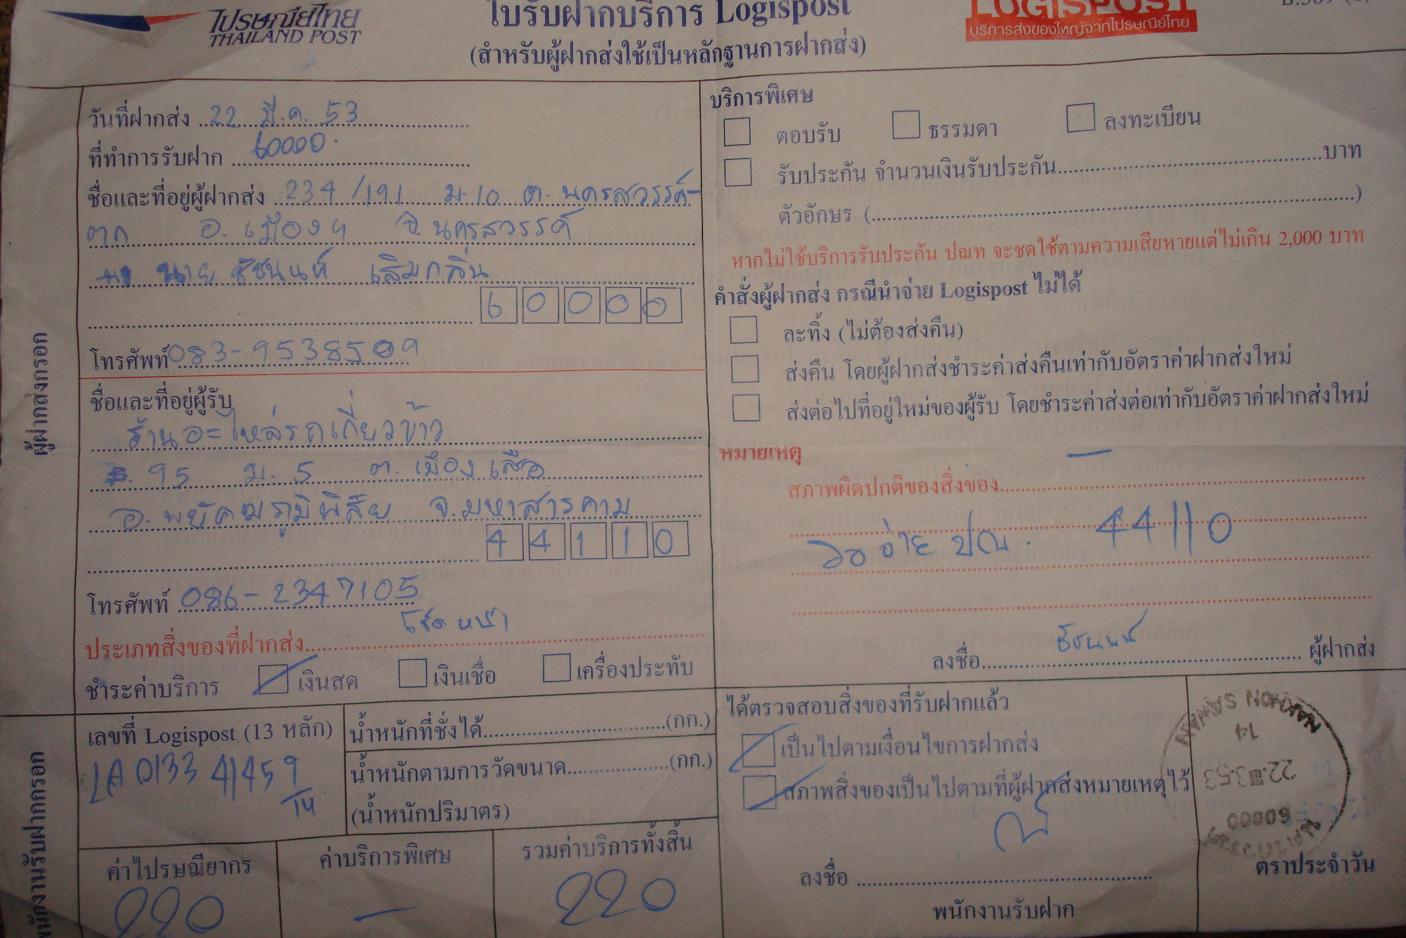 ไปรษณีย์ไทย
THAILAND POST
ใบรับฝากบริการ Logispost
(สำหรับผู้ฝากส่งใช้เป็นหลักฐานการฝากส่ง)
LOGISPOST
บริการส่งของใหญ่จากไปรษณีย์ไทย
ผู้ฝากส่งกรอก
วันที่ฝากส่ง 22 มี.ค. 53
ที่ทำการรับฝาก 60000
ชื่อและที่อยู่ผู้ฝากส่ง 234/191 ม.10 ต.นครสวรรค์-
ตก อ.เมืองฯ จ.นครสวรรค์
นาย ชัชนนท์ เสิมกลิ่น
60000
โทรศัพท์ 083-9538509
ชื่อและที่อยู่ผู้รับ
ร้านอะไหล่รถเกี่ยวข้าว
95 ม.5 ต.เมืองเสือ
อ.พยัคฆภูมิพิสัย จ.มหาสารคาม
44110
โทรศัพท์ 086-2347105
ประเภทสิ่งของที่ฝากส่ง
ชำระค่าบริการ เงินสด เงินเชื่อ เครื่องประทับ
บริการพิเศษ
ตอบรับ ธรรมดา ลงทะเบียน
รับประกัน จำนวนเงินรับประกัน บาท
ตัวอักษร ( )
หากไม่ใช้บริการรับประกัน ปณท จะชดใช้ตามความเสียหายแต่ไม่เกิน 2,000 บาท
คำสั่งผู้ฝากส่ง กรณีนำจ่าย Logispost ไม่ได้
ละทิ้ง (ไม่ต้องส่งคืน)
ส่งคืน โดยผู้ฝากส่งชำระค่าส่งคืนเท่ากับอัตราค่าฝากส่งใหม่
ส่งต่อไปที่อยู่ใหม่ของผู้รับ โดยชำระค่าส่งต่อเท่ากับอัตราค่าฝากส่งใหม่
หมายเหตุ
สภาพผิดปกติของสิ่งของ
จ่าย ปณ. 44110
ลงชื่อ ชัชนนท์ ผู้ฝากส่ง
พนักงานรับฝากกรอก
เลขที่ Logispost (13 หลัก)
LA013341459
TH
น้ำหนักที่ชั่งได้ (กก.)
น้ำหนักตามการวัดขนาด (กก.)
(น้ำหนักปริมาตร)
ค่าไปรษณียากร
220
ค่าบริการพิเศษ
-
รวมค่าบริการทั้งสิ้น
220
ได้ตรวจสอบสิ่งของที่รับฝากแล้ว
เป็นไปตามเงื่อนไขการฝากส่ง
สภาพสิ่งของเป็นไปตามที่ผู้ฝากส่งหมายเหตุไว้
ลงชื่อ
พนักงานรับฝาก
NAKHON SAWAN
14
22 3.53
60000
ตราประจำวัน